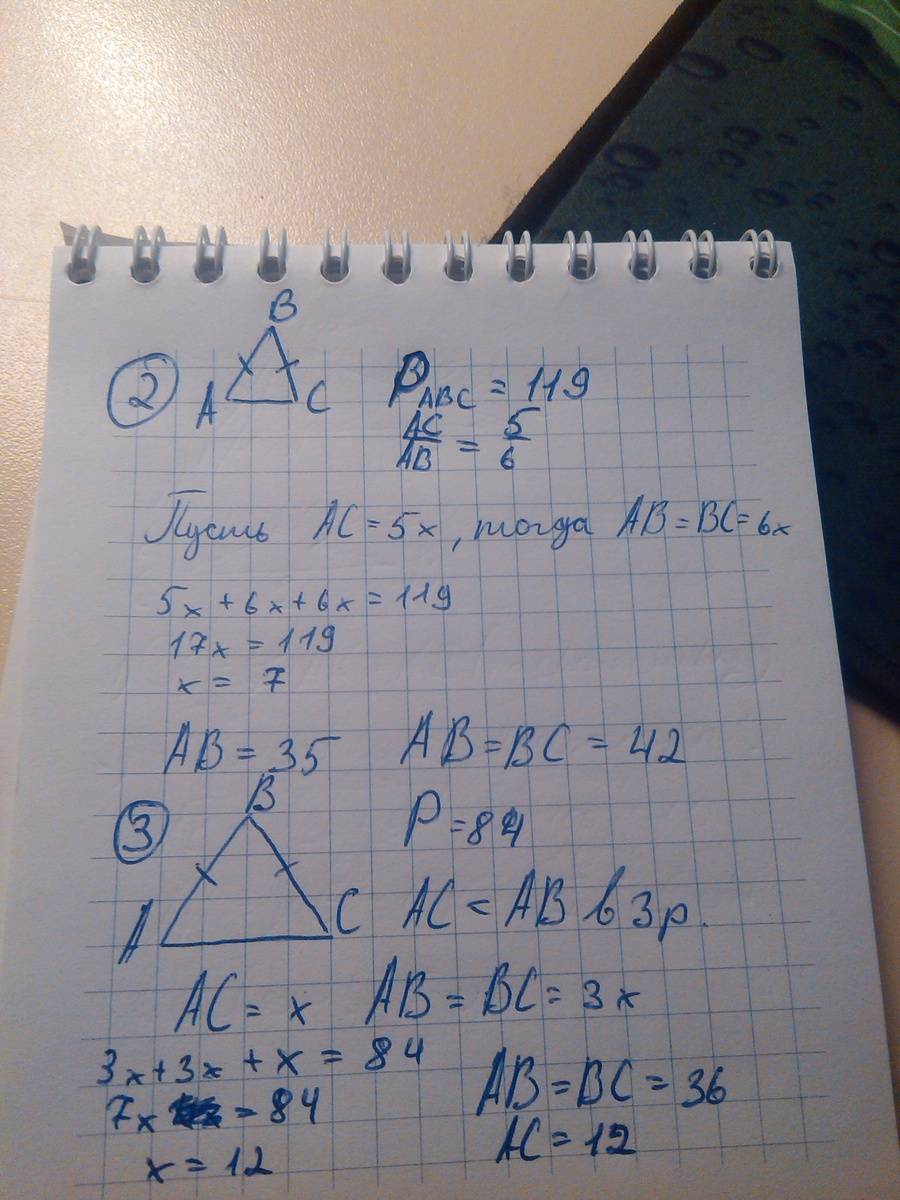 B
② A C P_ABC = 119
AC/AB = 5/6
Пусть AC = 5x, тогда AB = BC = 6x
5x + 6x + 6x = 119
17x = 119
x = 7
AB = 35 AB = BC = 42
B
③ P = 84
A C AC < AB в 3 р.
AC = x AB = BC = 3x
3x + 3x + x = 84
7x = 84 AB = BC = 36
x = 12 AC = 12